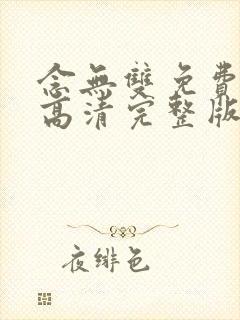 念無雙免費
高清完整版
夜緋色